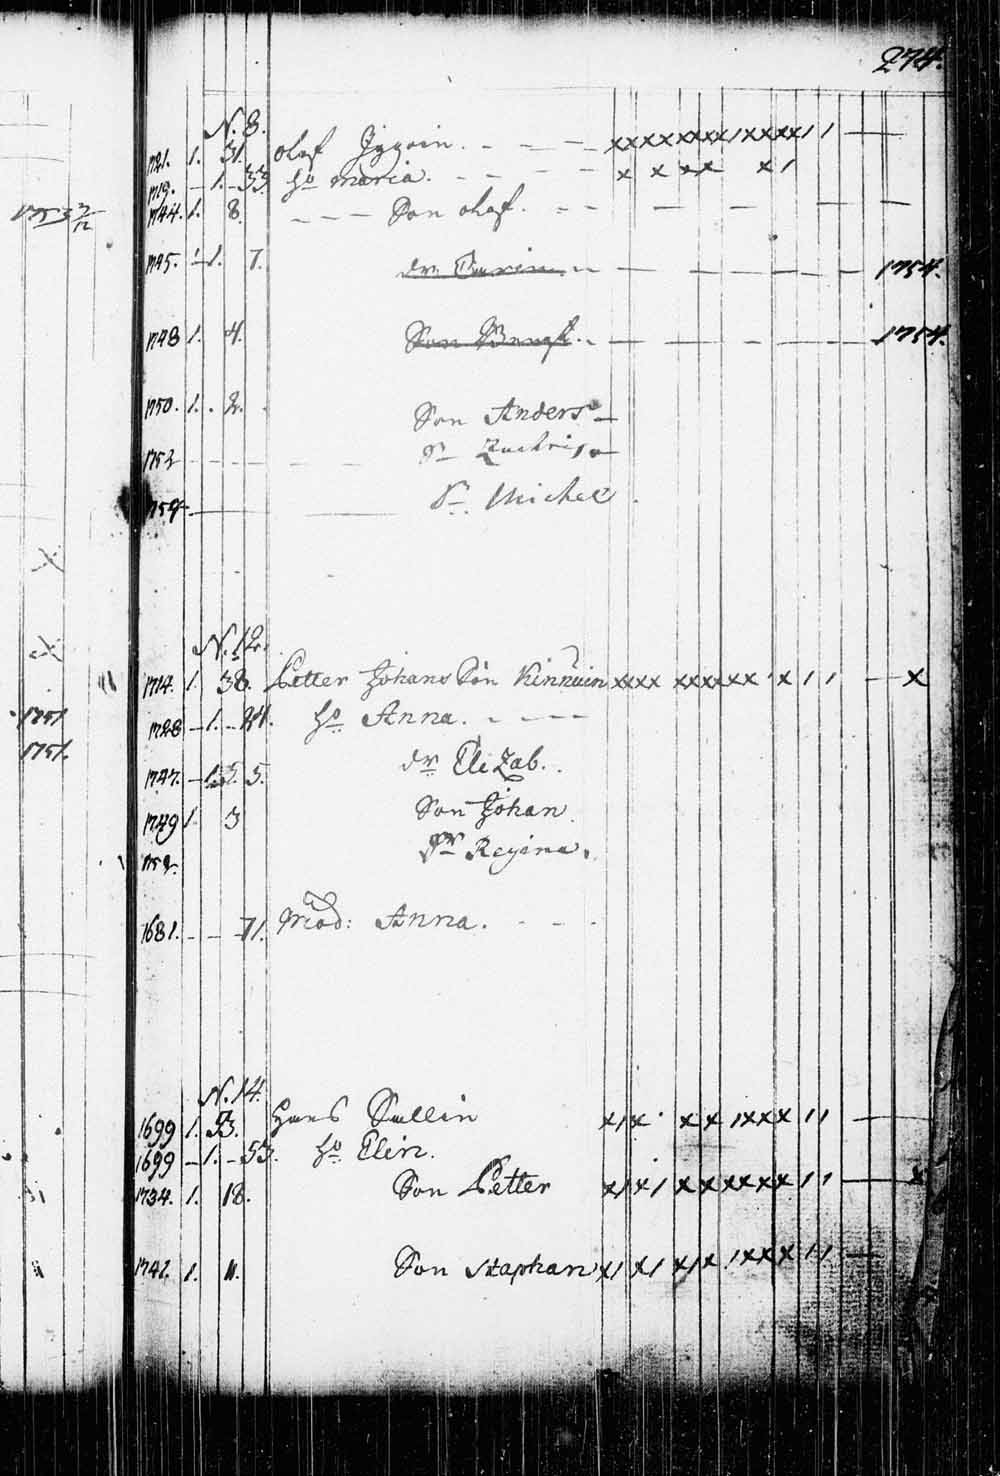 274.
N. 8.
1721. 1. 31. Olof xxxxxxxx/xxxxx//
1719. 1. 33 ho maria. x x xx x/
1753
1744. 1. 8. Son Olof.
1745. 1. 7. dr Carin 1754.
1748 1. 4. Son Bengt. 1754.
1750. 1. 2. Son Anders
1752 Sn Zachris
1759 Sn Michel
N. 12.
1714. 1. 38. Petter Johans Son Kinnuin xxxx xxxxxx x // x
1751 1728 1. 24. ho Anna.
1751. 1747. 1. 5. dr Elizab.
1749 1. 3 Son Johan.
1752. Regina.
1681. 71. Mod: Anna.
N. 14.
1699 1. 53. Hans Sallin x/x xx /xxx //
1699 1. 53. ho Elin.
1734. 1. 18. Son Petter x/x/ xxxxxx // x
1741. 1. 11. Son Staphan x/ x/ x/x /xxx //